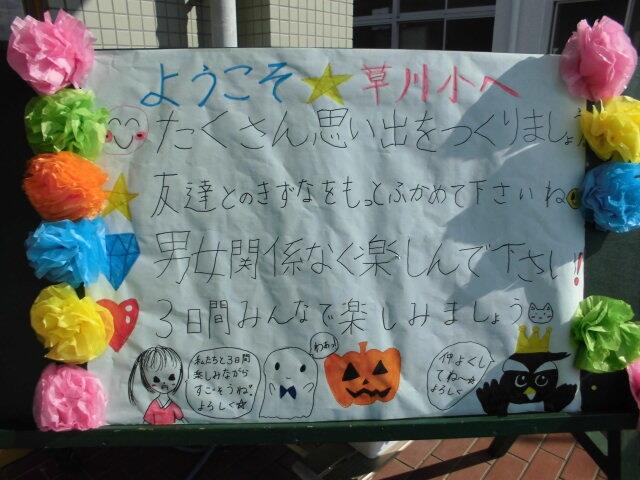 ようこそ☆草川小へ
たくさん思い出をつくりましょう
友達とのきずなをもっとふかめて下さいね
男女関係なく楽しんで下さい!!
3日間みんなで楽しみましょう
私たちと3日間
楽しみながら
すごそうね!
よろしく☆
わぁっ
仲よくし
てね〜☆
よろしく